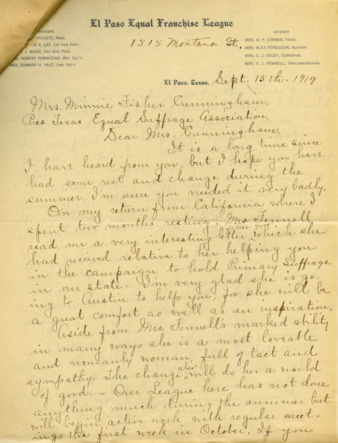 El Paso Equal Franchise League
1515 Montana St,
El Paso, Texas, Sept. 15th. 1919
Mrs. Minnie Fisher Cunningham,
Pres Texas Equal Suffrage Association,
Dear Mrs. Cunningham,
It is a long time since
I have heard from you, but I hope you have
had some rest and change during the
summer. I'm sure you needed it very badly.
On my return from California where I
spent two months resting, Mrs. Fennell
read me a very interesting letter which she
had received relative to her helping you
in the campaign to hold Primary Suffrage
in our state. I'm very glad she is go
ing to Austin to help you, for she will be
a great comfort as well as an inspiration.
Aside from Mrs. Fennell's marked ability
in many ways she is a most lovable
and womanly woman, full of tact and
sympathy. The change also will do her a world
of good. - Our League here has not done
anything much during the summer but
will begin active work with regular meet-
ings the first week in October. If you